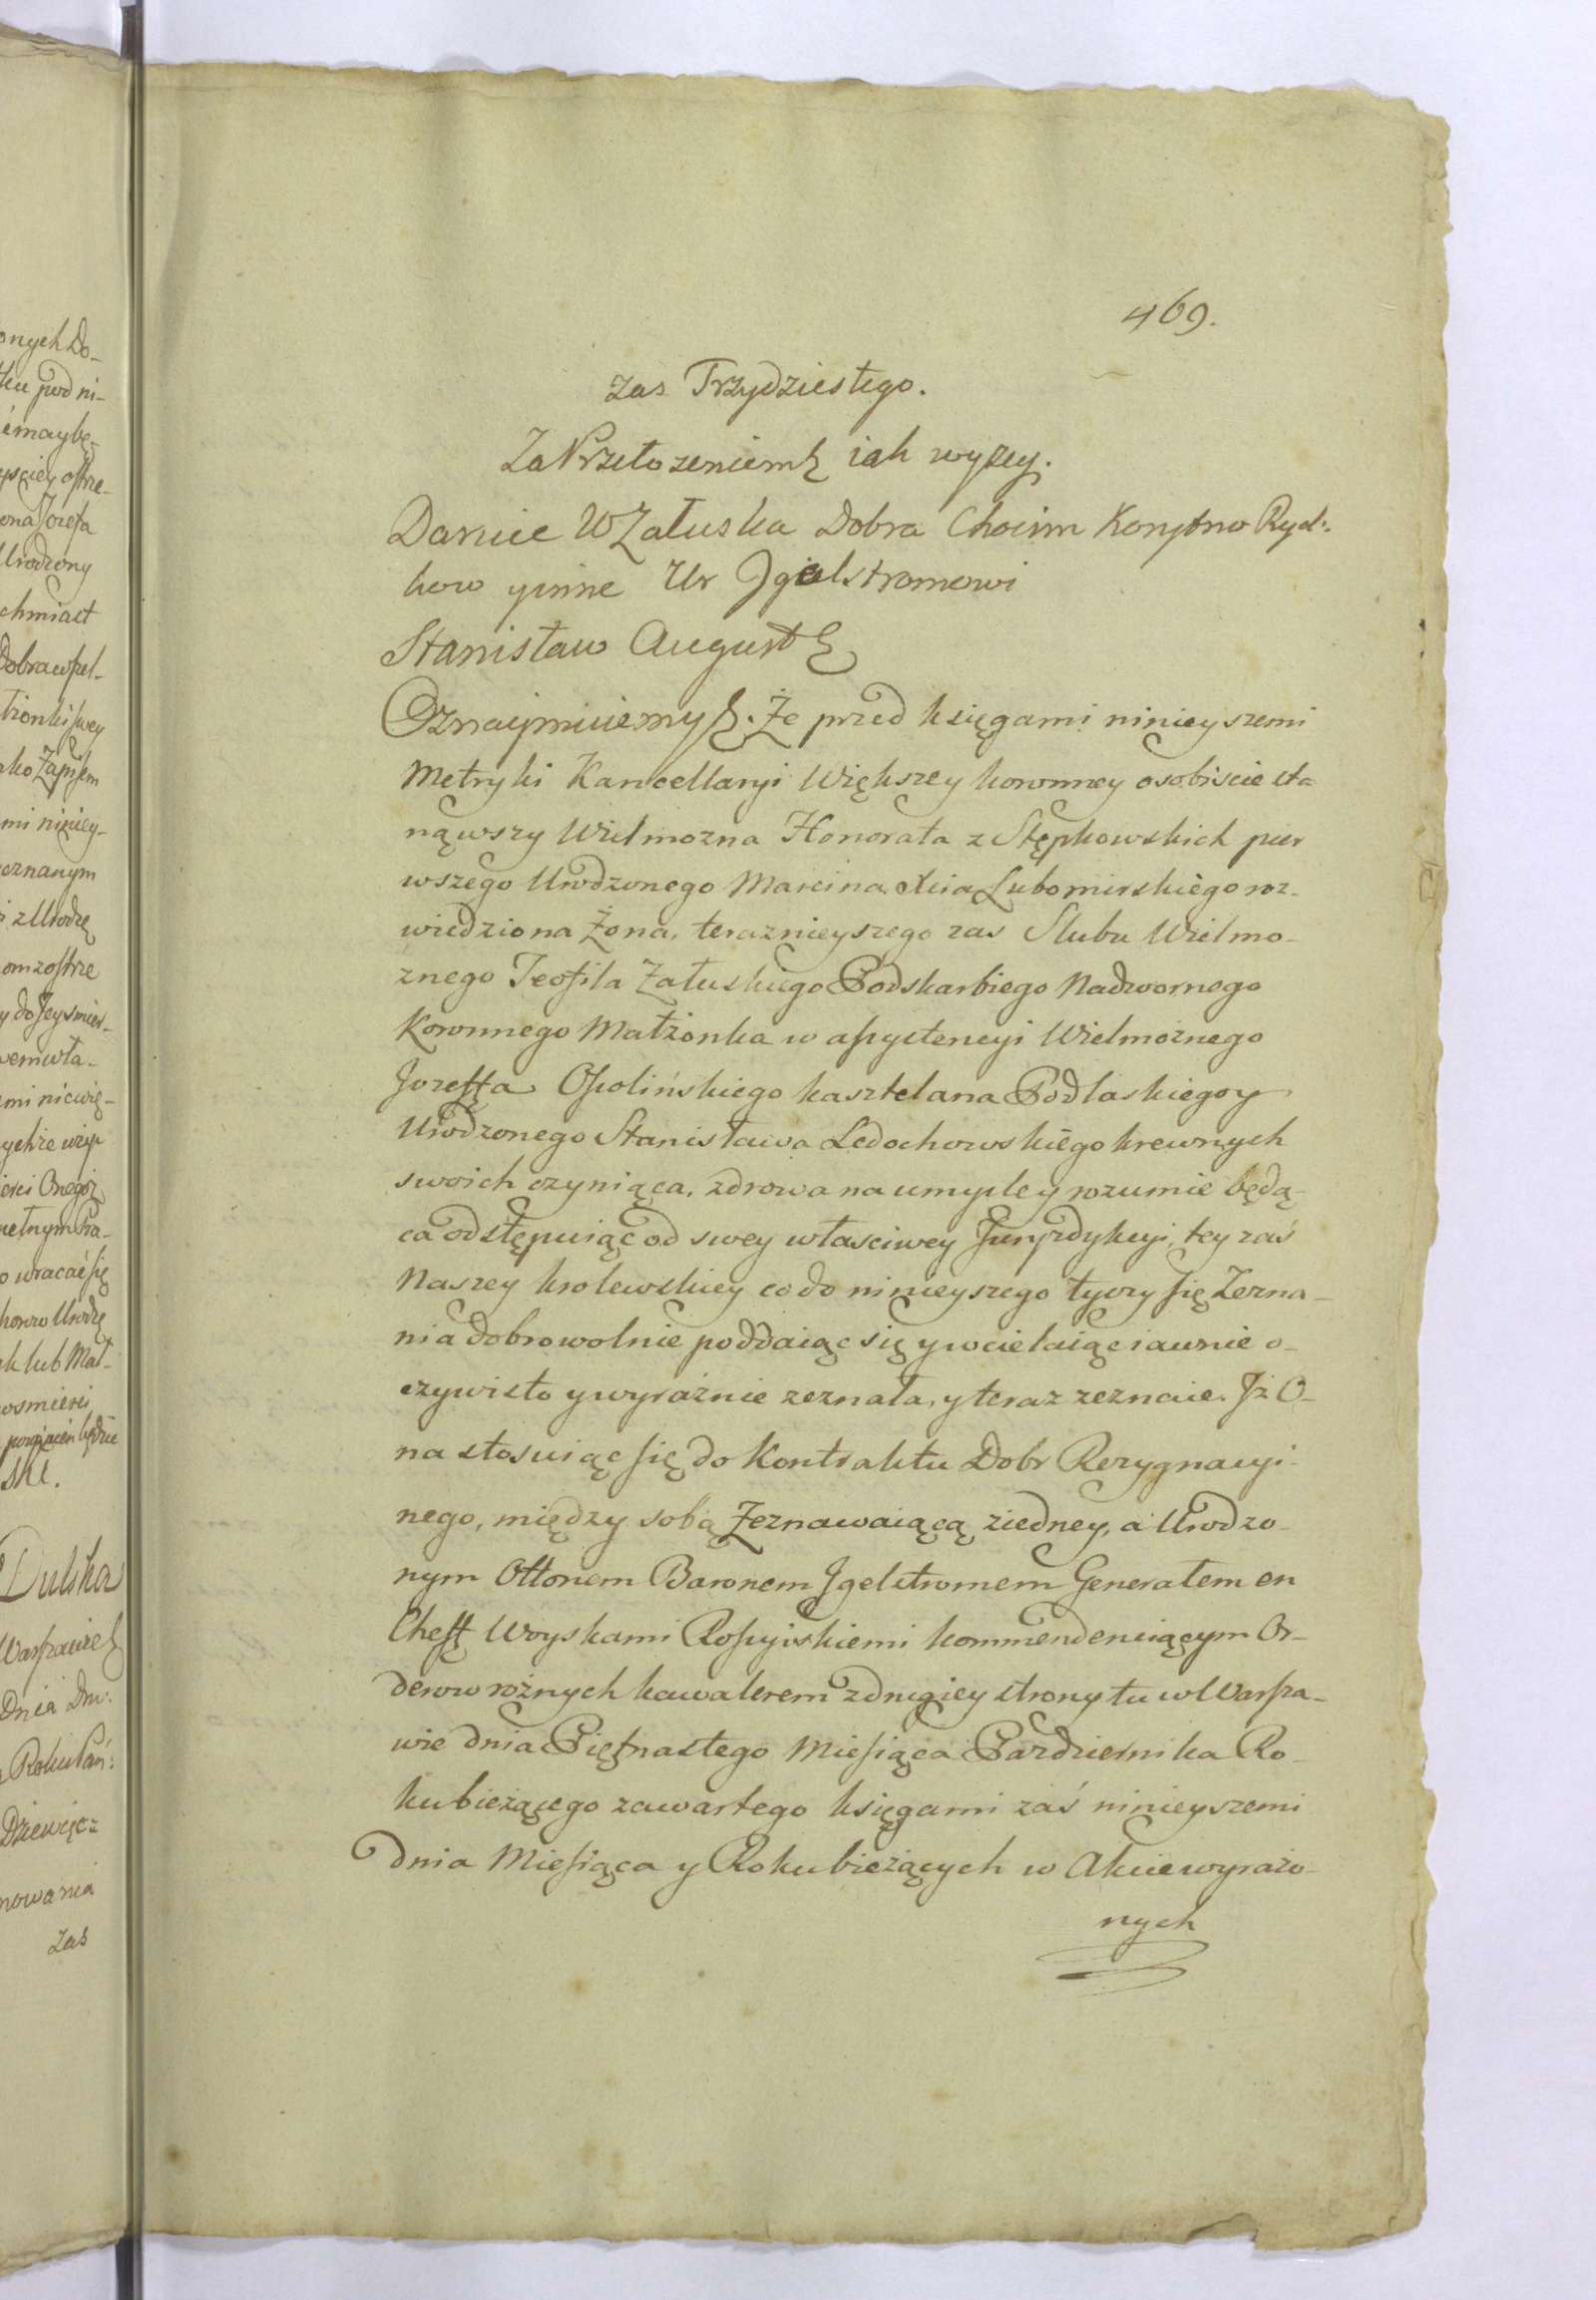 469.
zas Trzydziestego.
Za Przełozeniem jak wyzey.
Daruie W Załuska Dobra Chocim Konytno Ryd:
kow yinne Ur Jgielstromowi
Stanisław August
Oznaymuiemy. Że przed księgami ninieyszemi
Metryki Kancellaryi Większey koronney osobiscie sta
nąwszy Wielmozna Honorata z Stępkowskich pier
wszego Urodzonego Marcina Xcia Lubomirskiego roz-
wiedziona Żona, teraznieyszego zas Slubu Wielmo-
znego Teofila Załuskiego Podskarbiego Nadwornego
Koronnego Małżonka w assystencyi Wielmożnego
Jozeffa Ossolińskiego kasztelana Podlaskiego y
Urodzonego Stanisława Ledochowskiego krewnych
swoich czyniąca, zdrowa na umysle y rozumie będą-
ca odstępuiąc od swey własciwey Juryzdykcyi, tey zaś
Naszey krolewskiey co do ninieyszego tyczy się Zezna-
nia dobrowolnie poddaiąc się y wcielaiąc iawnie o-
czywisto y wyraźnie zeznała, y teraz zeznaie. Jż O-
na stosuiąc się do Kontraktu Dobr Rezygnacyi-
nego, między sobą Zeznawaiącą ziedney, a Urodzo-
nym Ottonem Baronem Jgelstromem Generałem en
Cheff Woyskami Rossyiskiemi kommenderuiącym Or-
derow rożnych kawalerem z drugiey strony tu w Warsza-
wie dnia Piętnastego Miesiąca Pazdziernika Ro-
ku bieżącego zawartego księgami zaś ninieyszemi
dnia Miesiąca y Roku bieżących w Akcie wyrażo-
nych
onych Do-
ona Jozefa
Urodzony
chmiast
tionki swey
mi niniey-
eznanym
i z Urodzę
om zostrze
mi nicwię-
o wracać się
k lub Mał-
wsmierci
ske.
Dulska
Warszawie
Dnia Dw:
Roku Pań:
Dziewięc=
nowania
zas